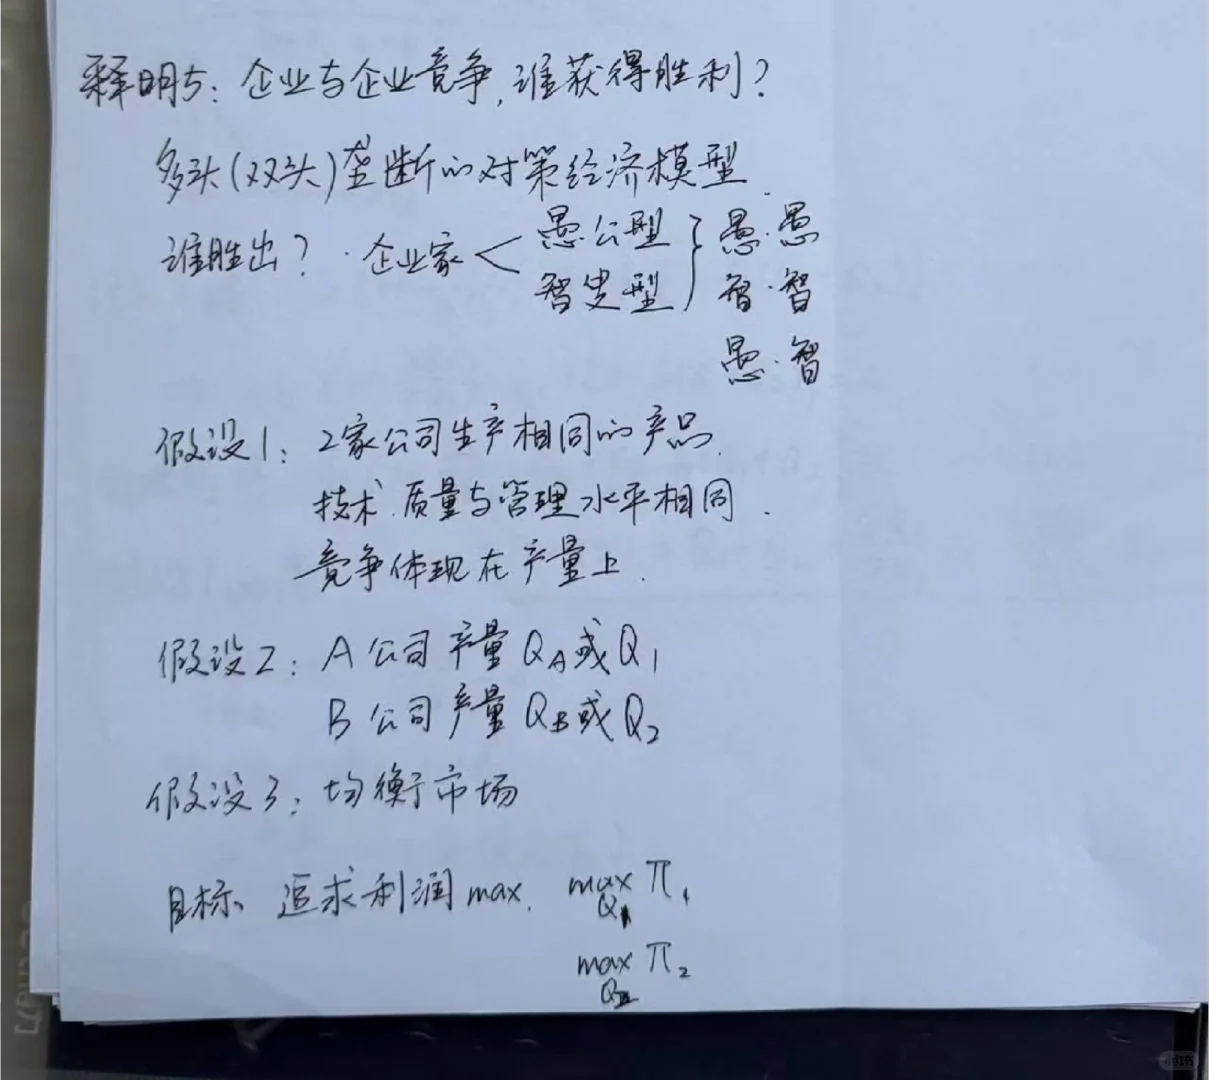 释明5：企业与企业竞争，谁获得胜利？
多头(双头)垄断的对策经济模型.
谁胜出？·企业家 < 愚公型 } 愚·愚
智叟型 智·智
愚·智
假设1：2家公司生产相同的产品.
技术.质量与管理水平相同.
竞争体现在产量上.
假设2：A公司产量QA或Q1
B公司产量QB或Q2
假设3：均衡市场
目标、追求利润max. max π1
Q1
max π2
Q2
小红书